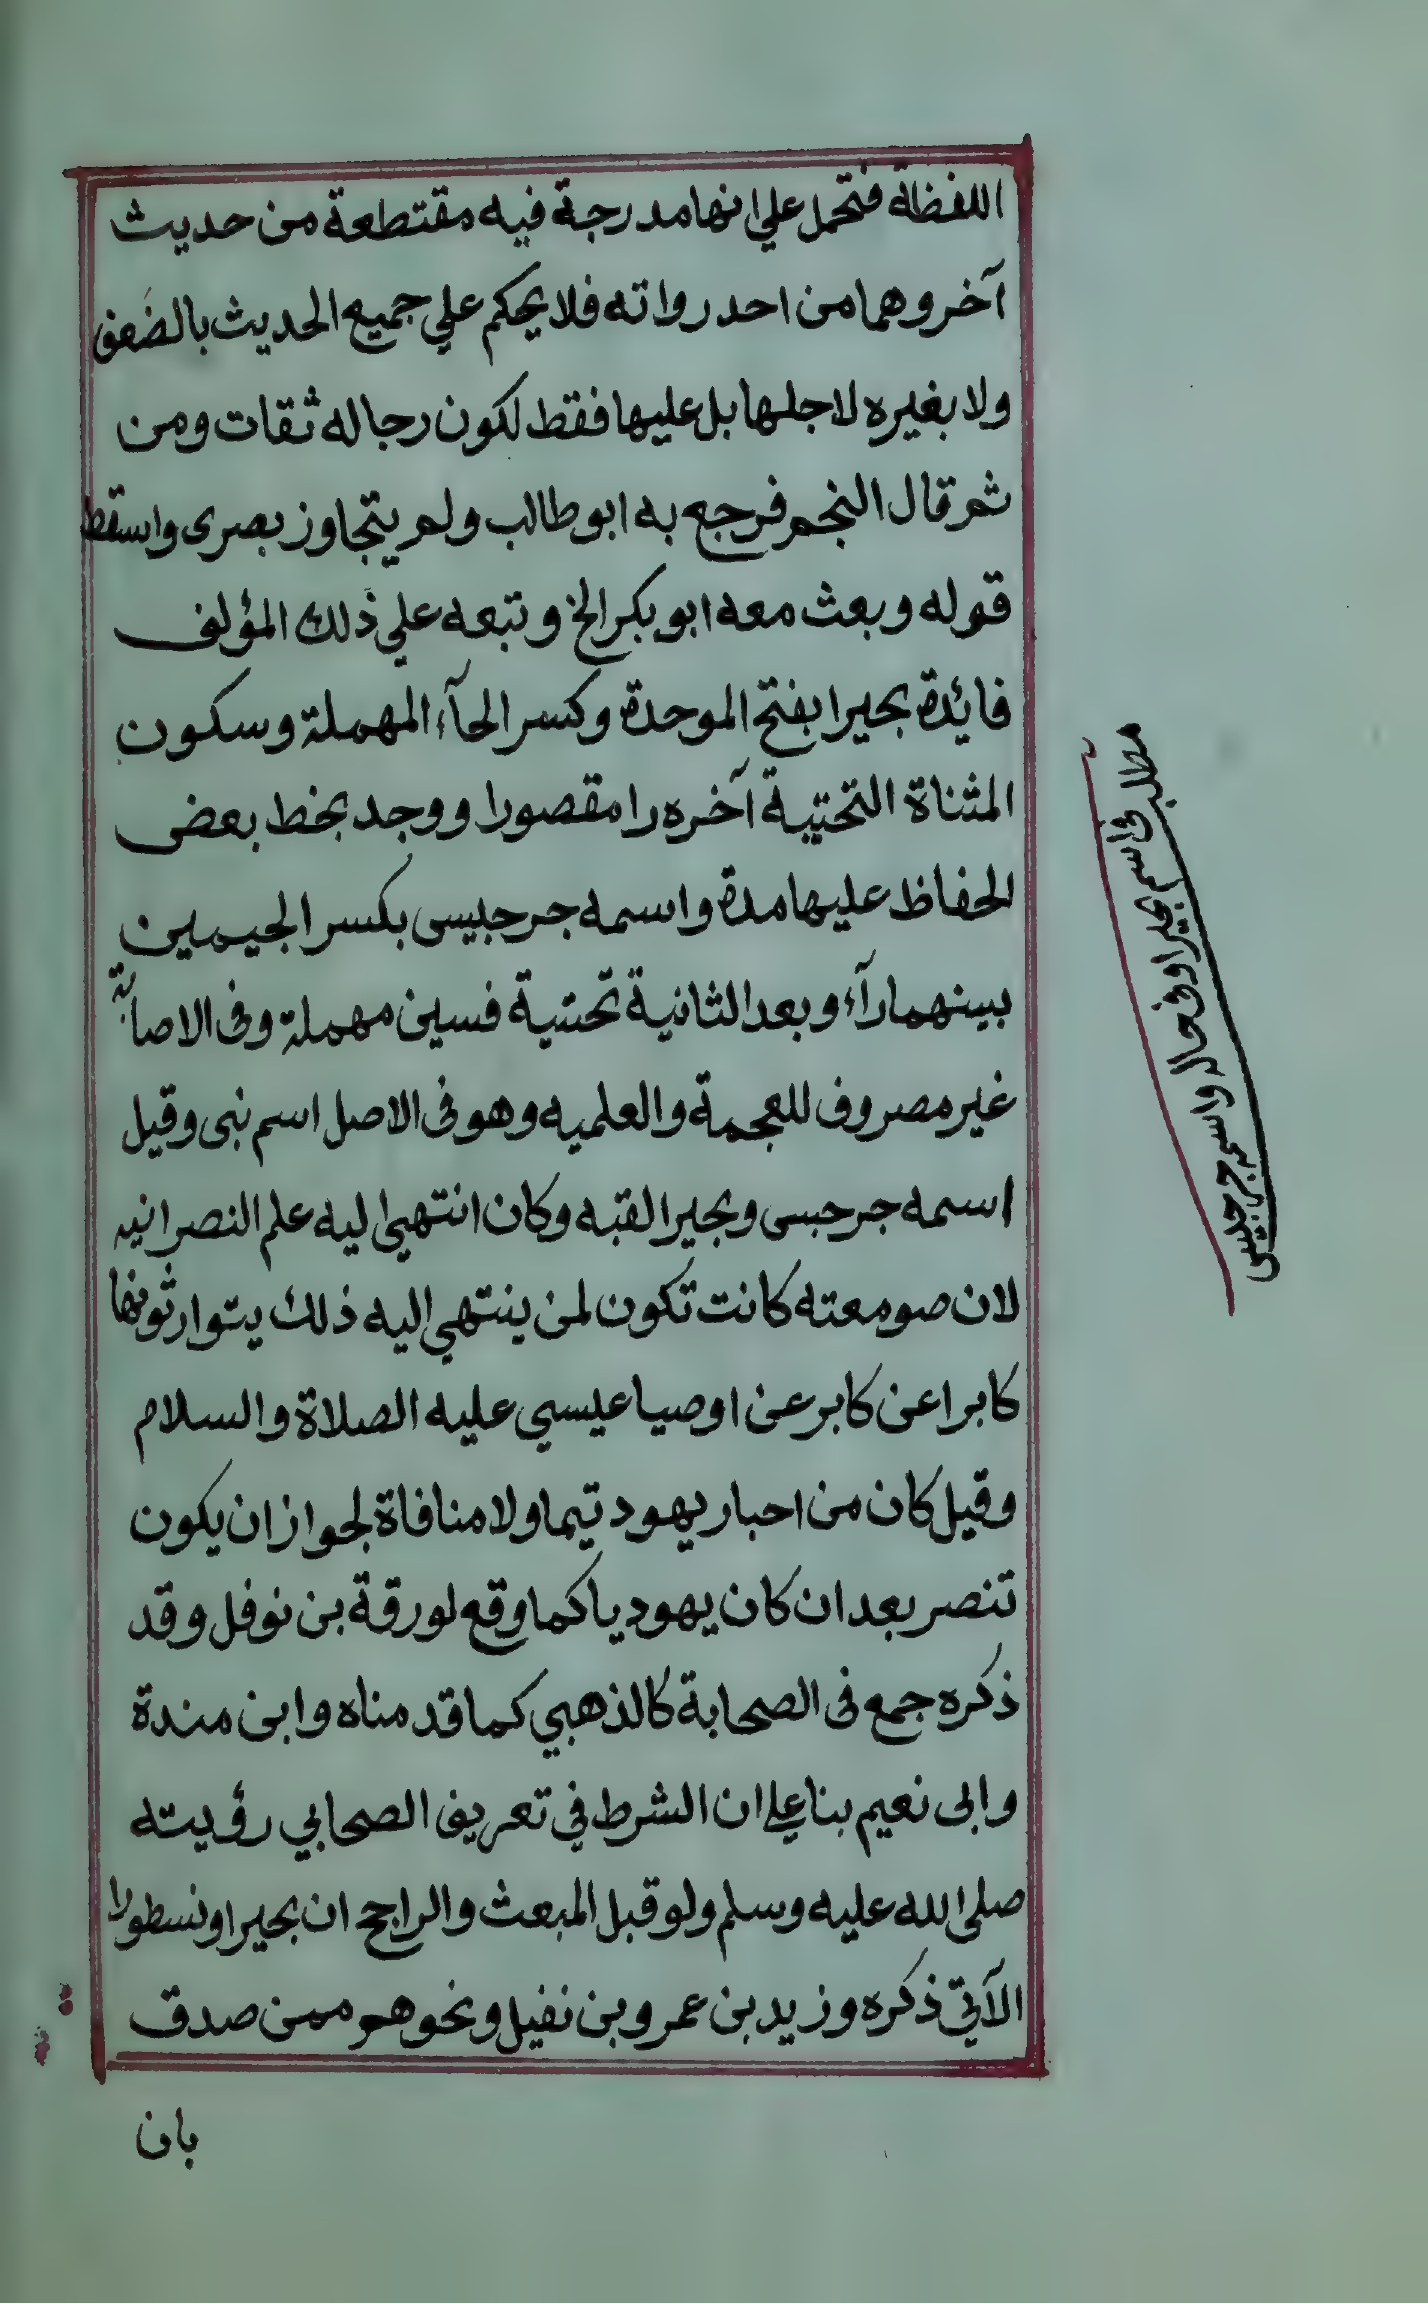 اللفظة فتحمل علي انها مدرجة فيه مقتطعة من حديث
آخر وهما من احد رواته فلا يحكم علي جميع الحديث بالضعف
ولا بغيره لاجلها بل عليها فقط لكون رجاله ثقات ومن
ثم قال النجم فرجع به ابو طالب ولم يتجاوز بصرى واسقط
قوله وبعث معه ابو بكر الخ وتبعه علي ذلك المؤلف
فائدة بحيرا بفتح الموحدة وكسر الحآء المهملة وسكون
المثناة التحتية آخره را مقصورا ووجد بخط بعض
الحفاظ عليها مدة واسمه جرجيس بكسر الجيمين
بينهما رآء وبعد الثانية تحتية فسين مهملة وفى الاصابة
غير مصروف للعجمة والعلميه وهو فى الاصل اسم نبى وقيل
اسمه جرجس وبحيرا لقبه وكان انتهى اليه علم النصرانيه
لان صومعته كانت تكون لمن ينتهي اليه ذلك يتوارثونها
كابرا عن كابر عن اوصيا عيسي عليه الصلاة والسلام
وقيل كان من احبار يهود تيما ولا منافاة لجواز ان يكون
تنصر بعد ان كان يهوديا كما وقع لورقة بن نوفل وقد
ذكره جمع فى الصحابة كالذهبي كما قدمناه وابن مندة
وابى نعيم بنا علي ان الشرط في تعريف الصحابي رؤيته
صلى الله عليه وسلم ولو قبل المبعث والراجح ان بحيرا ونسطولا
الآتي ذكره وزيد بن عمرو بن نفيل ونحوهم ممن صدق
بان
مطلب فى اسم بحيرا وفى حاله واسمه جرجيس